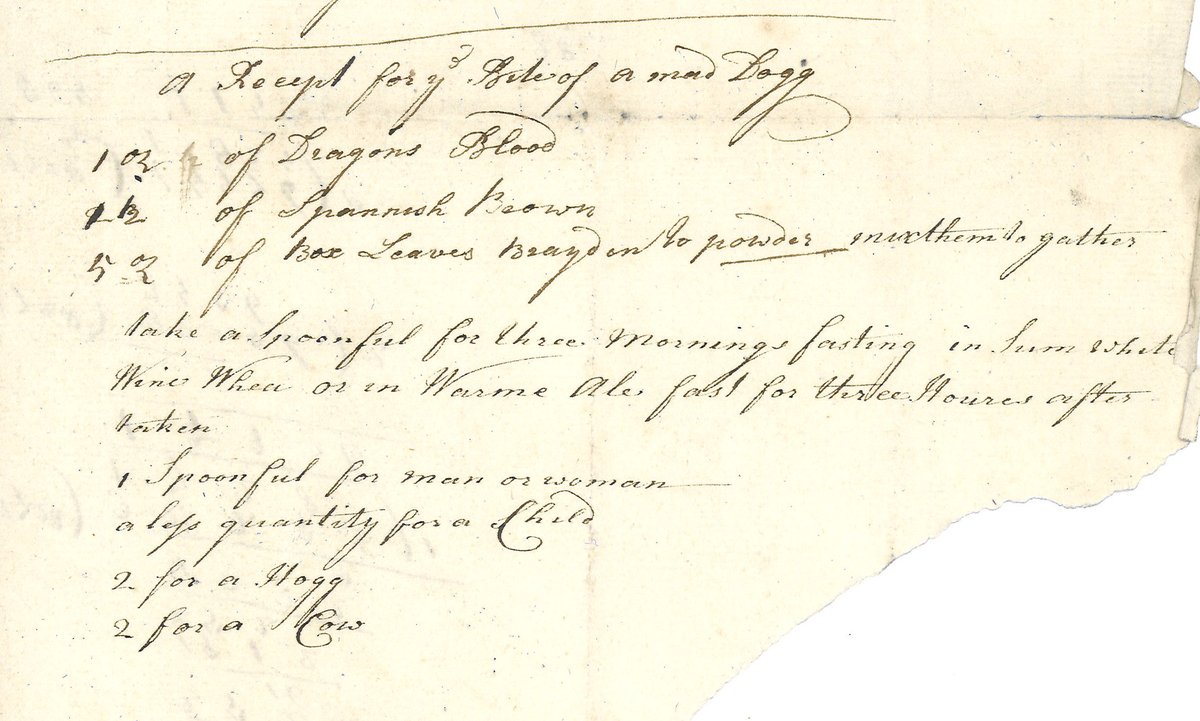 A Recept for yͤ Bite of a mad Dogg
1 oz of Dragons Blood
of Spannish Brown
5 oz of Box Leaves Brayd in to powder mix them to gather
take a Spoonful for three Mornings fasting in Sum white
Wine Whea or in Warme Ale fast for three Houres after
taken
1 Spoonful for man or woman
a less quantity for a Child
2 for a Hogg
2 for a Cow